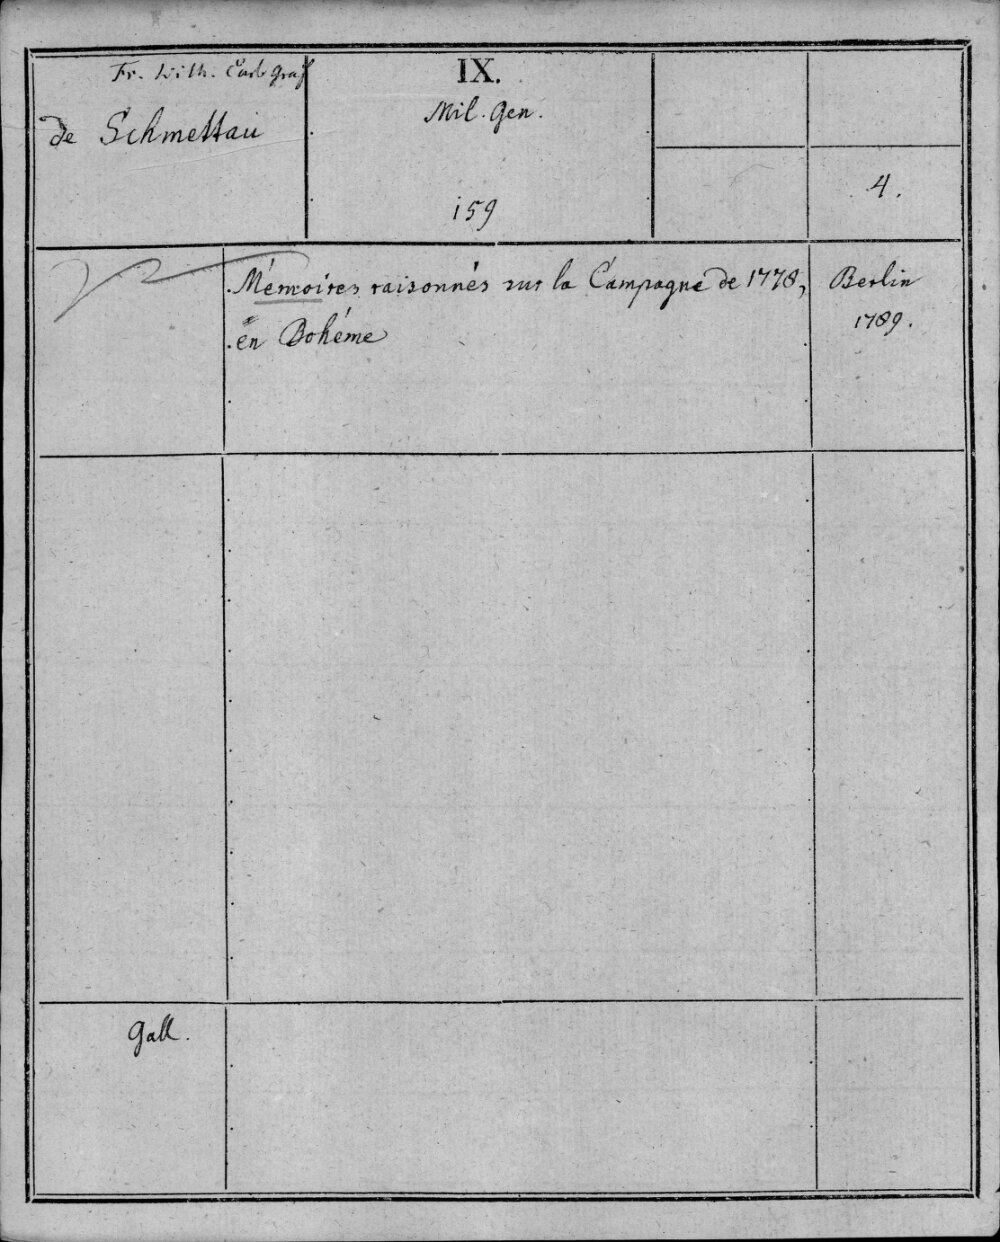 Fr. Wilh. Carl Graf
de Schmettau
IX.
Mil. Gen.
159
4.
Mémoires raisonnés sur la Campagne de 1778,
en Bohéme
Berlin
1789.
Gall.